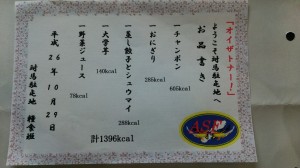 「オイザトナー!」
ようこそ対馬駐屯地へ
お品書き
一 チャンポン
605kcal
一 おにぎり
285kcal
一 蒸し餃子とシュウマイ
288kcal
一 大学芋
140kcal
一 野菜ジュース
78kcal
計1396kcal
平成26年10月29日
対馬駐屯地 糧食班